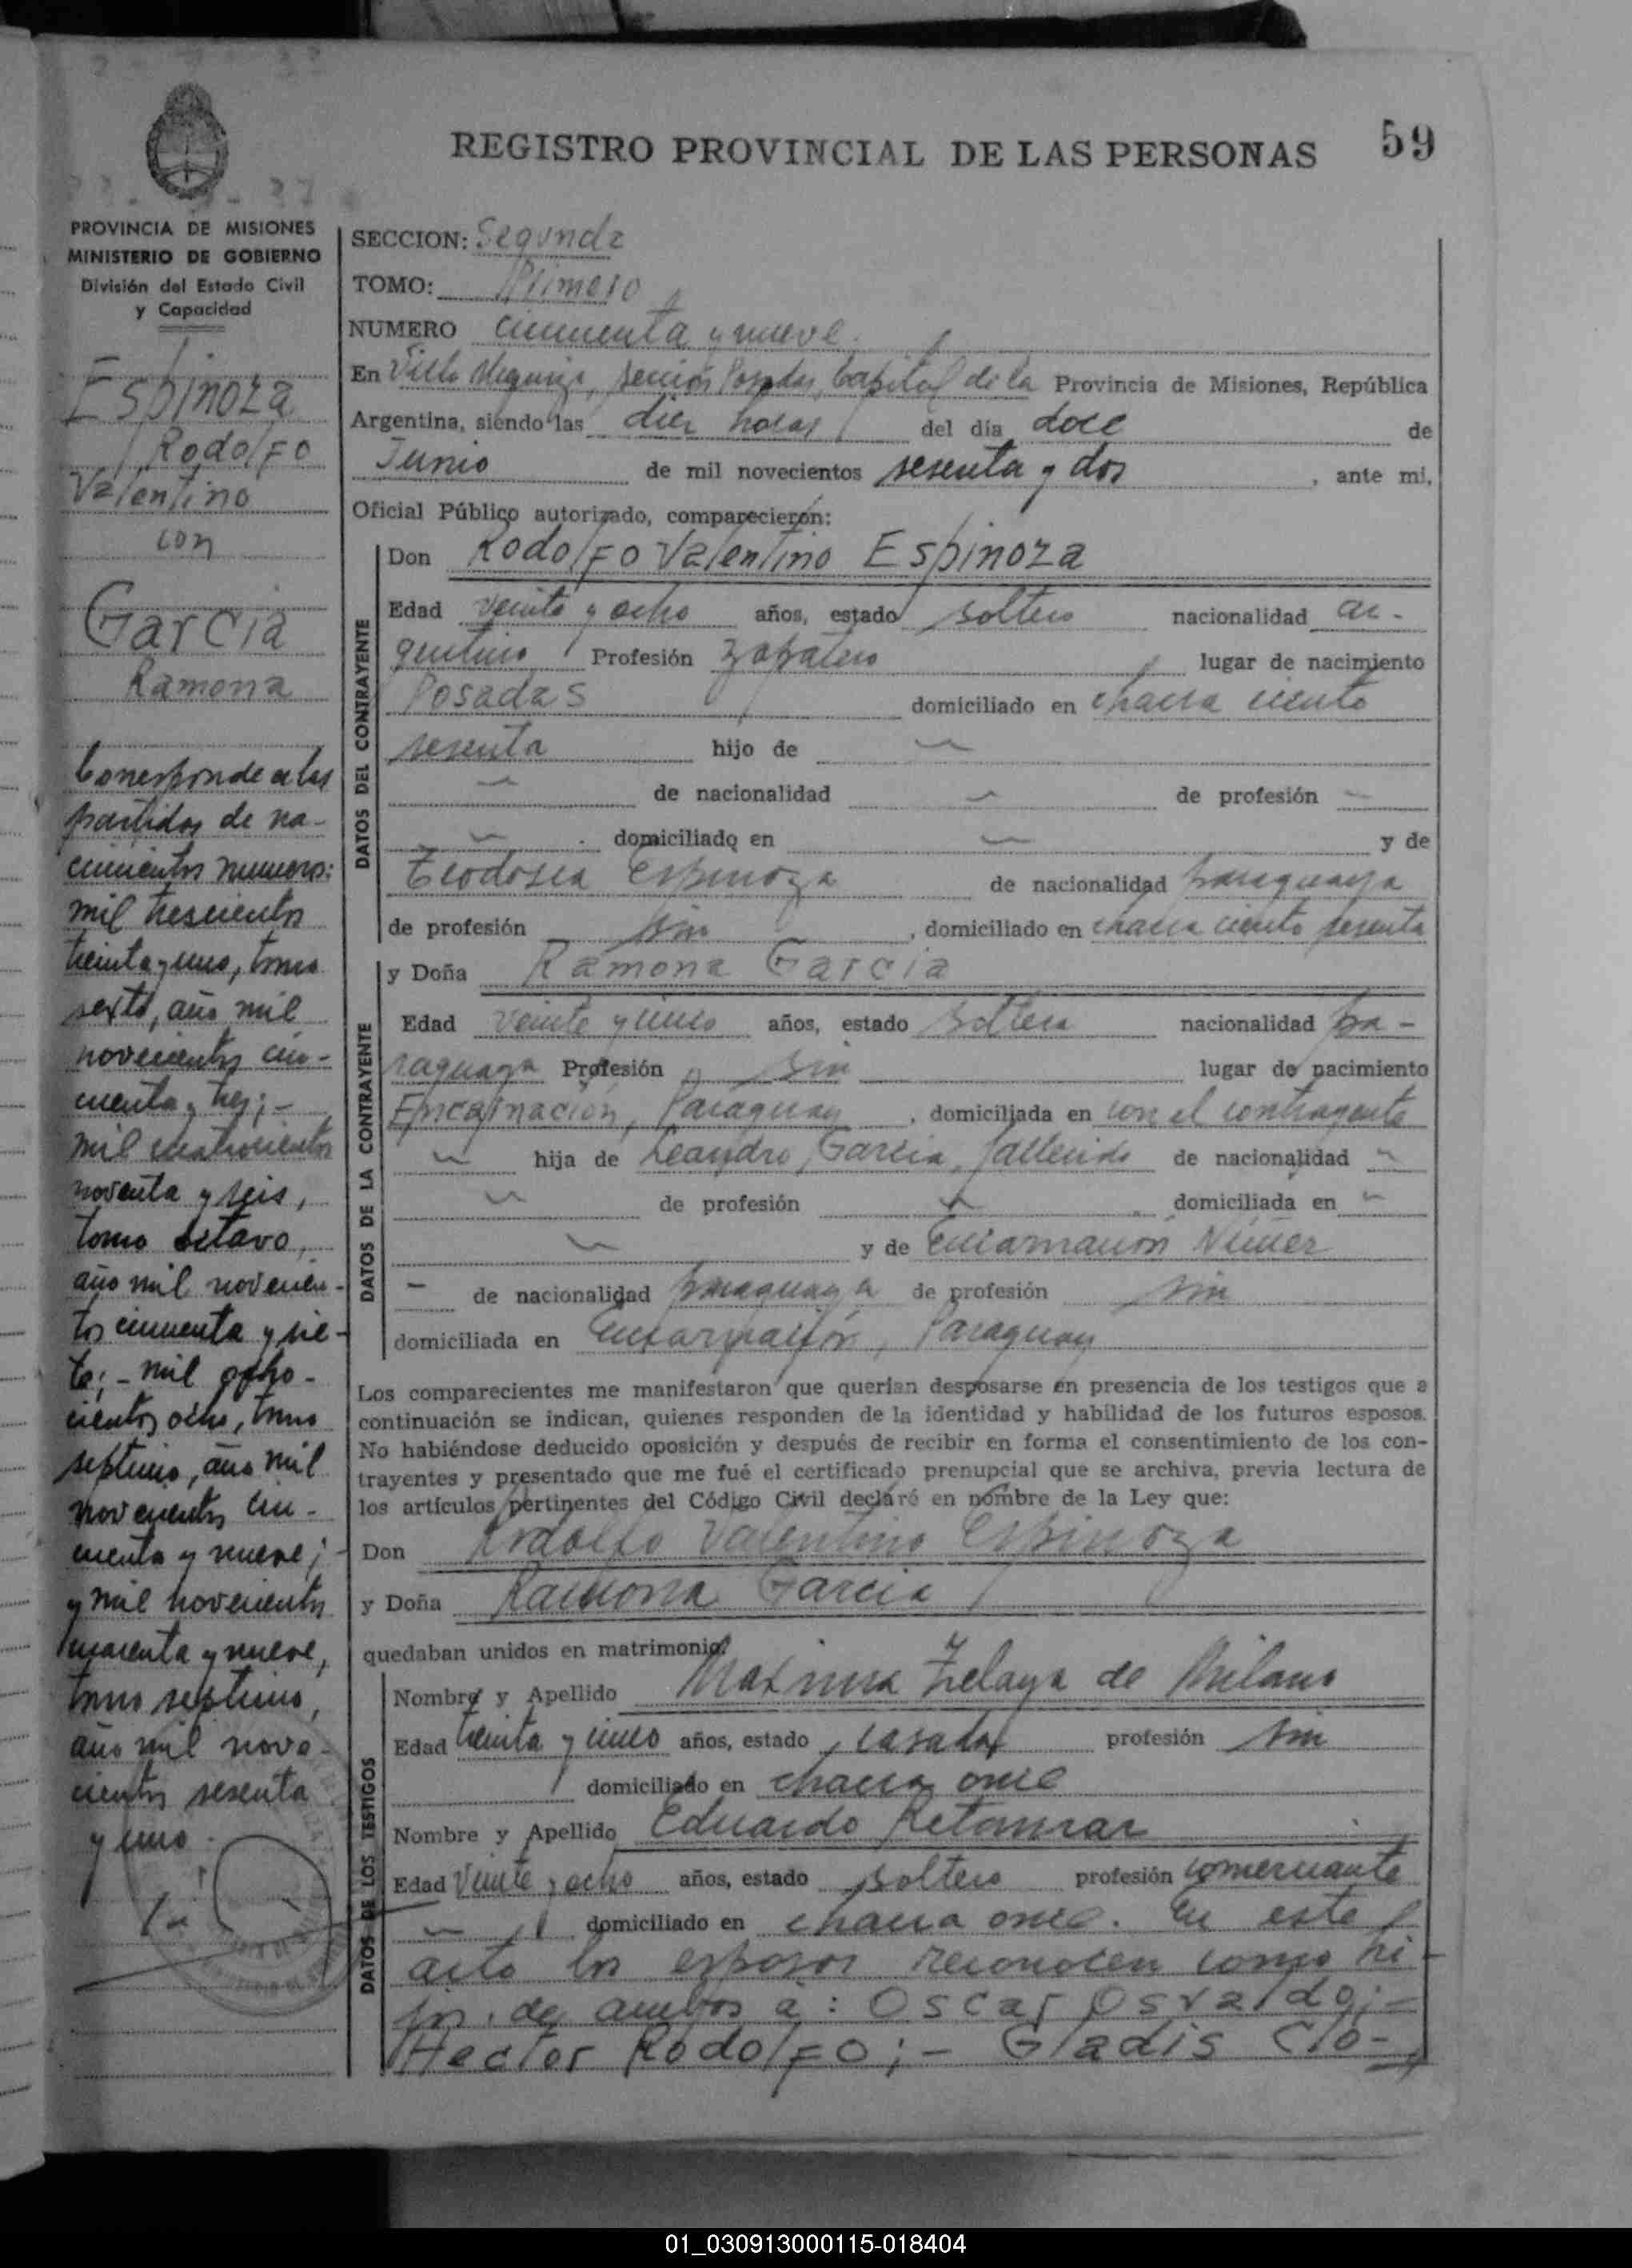 REGISTRO PROVINCIAL DE LAS PERSONAS 59
PROVINCIA DE MISIONES
MINISTERIO DE GOBIERNO
División del Estado Civil
y Capacidad
Espinoza
Rodolfo
Valentino
con
García
Ramona
Corresponde a las
partidas de na-
cimientos numeros:
mil trescientos
treinta y uno, tomo
sexto, año mil
novecientos cin-
cuenta y tres; -
mil cuatrocientos
noventa y seis,
tomo octavo,
año mil novecien-
tos cincuenta y sie-
te; - mil ocho-
cientos ocho, tomo
septimo, año mil
novecientos cin-
cuenta y nueve;
y mil novecientos
cuarenta y nueve,
tomo septimo,
año mil nove-
cientos sesenta
y uno.
SECCION: Segunda
TOMO: Primero
NUMERO cincuenta y nueve.
En Villa Urquiza, sección Posadas, Capital de la Provincia de Misiones, República
Argentina, siendo las diez horas del día doce de
Junio de mil novecientos sesenta y dos, ante mi,
Oficial Público autorizado, comparecieron:
DATOS DEL CONTRAYENTE
Don Rodolfo Valentino Espinoza
Edad veinte y ocho años, estado soltero nacionalidad ar-
gentino Profesión zapatero lugar de nacimiento
Posadas domiciliado en chacra ciento
sesenta hijo de —
— de nacionalidad — de profesión —
— domiciliado en — y de
Teodosia Espinoza de nacionalidad paraguaya
de profesión sin, domiciliado en chacra ciento sesenta
DATOS DE LA CONTRAYENTE
y Doña Ramona García
Edad veinte y cinco años, estado soltera nacionalidad pa-
raguaya Profesión sin lugar de nacimiento
Encarnación, Paraguay, domiciliada en con el contrayente
— hija de Leandro García, fallecido de nacionalidad —
— de profesión — domiciliada en —
— y de Encarnación Núñez
— de nacionalidad paraguaya de profesión sin
domiciliada en Encarnación, Paraguay
Los comparecientes me manifestaron que querían desposarse en presencia de los testigos que a
continuación se indican, quienes responden de la identidad y habilidad de los futuros esposos.
No habiéndose deducido oposición y después de recibir en forma el consentimiento de los con-
trayentes y presentado que me fué el certificado prenupcial que se archiva, previa lectura de
los artículos pertinentes del Código Civil declaré en nombre de la Ley que:
Don Rodolfo Valentino Espinoza
y Doña Ramona García
quedaban unidos en matrimonio.
DATOS DE LOS TESTIGOS
Nombre y Apellido Maxima Zelaya de Milano
Edad treinta y cinco años, estado casada profesión sin
domiciliado en chacra once
Nombre y Apellido Eduardo Retamar
Edad veinte y ocho años, estado soltero profesión comerciante
— domiciliado en chacra once. En este
acto los esposos reconocen como hi-
jos de ambos a: Oscar Osvaldo; -
Hector Rodolfo; - Gladis Clo-
01_030913000115-018404